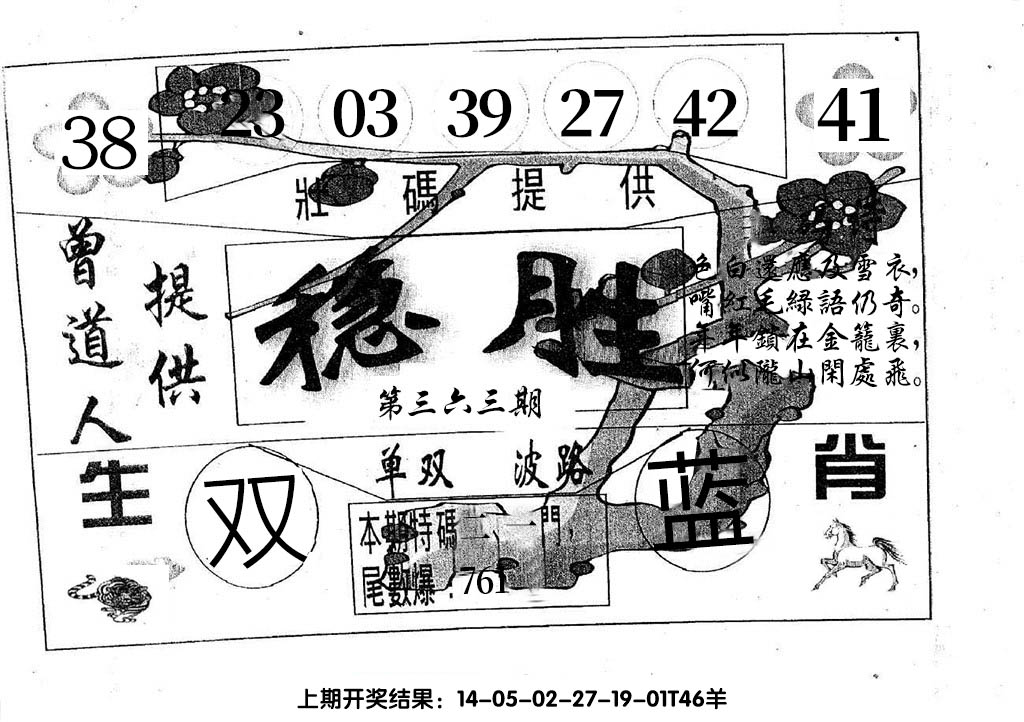 38 23 03 39 27 42 41
壯碼提供
曾道人
提供
稳胜
第三六三期
色白還應及雪衣，
嘴紅毛綠語仍奇。
年年鎖在金籠裏，
何似隴山閑處飛。
单双 波路
生 双 蓝 肖
本期特碼二、一門，
尾數爆：761
上期开奖结果：14-05-02-27-19-01T46羊